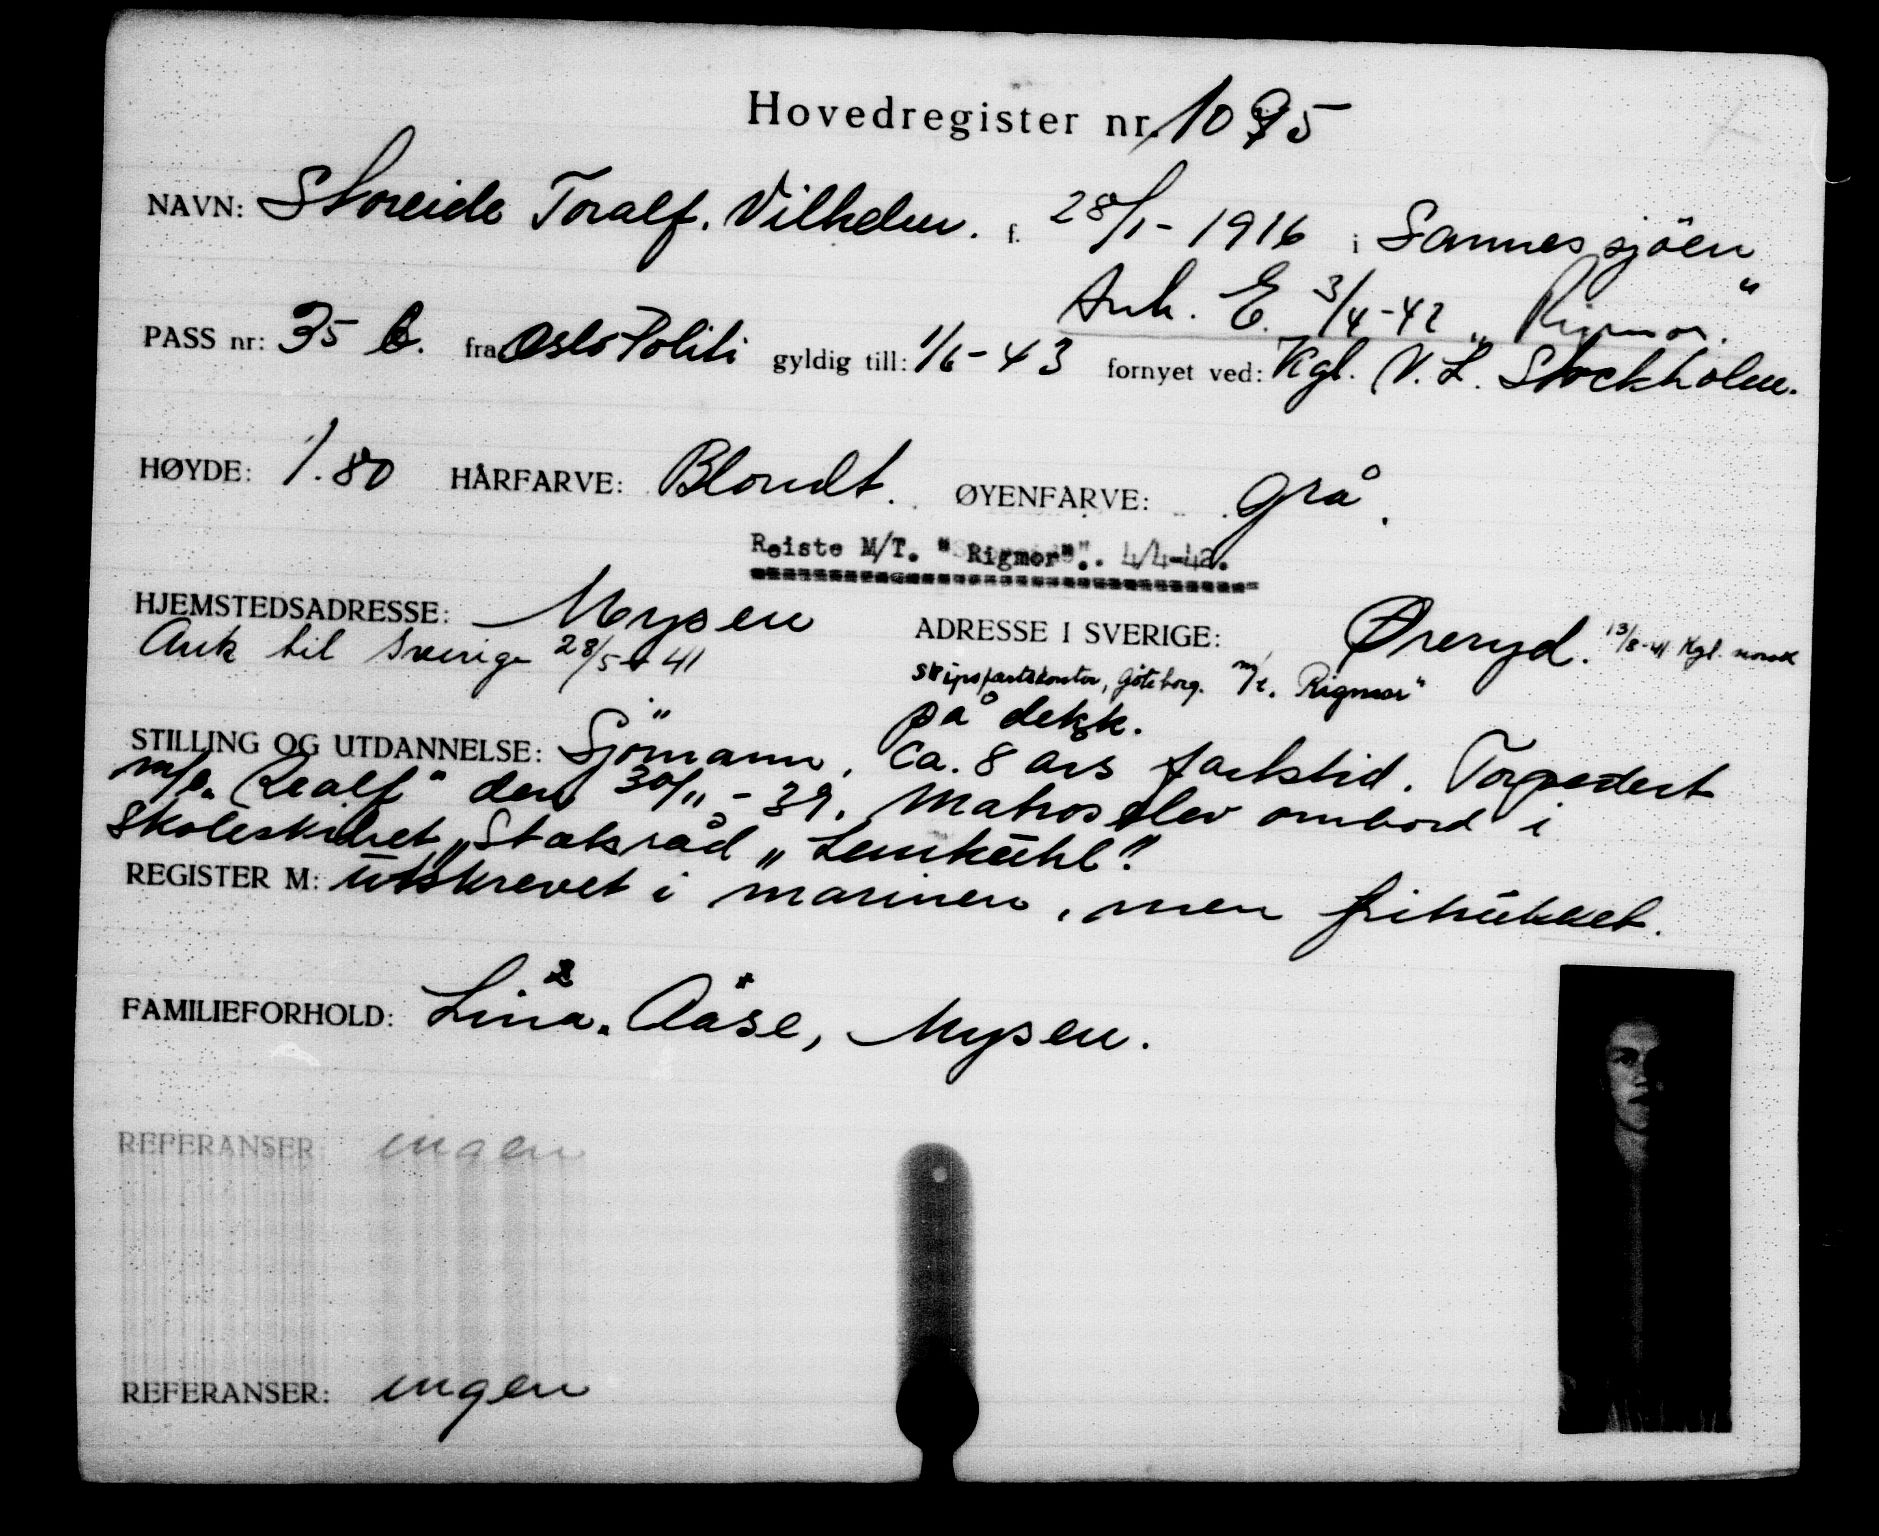 Hovedregister nr. 1095
NAVN: Storeide Toralf. Vilhelm. f. 28/1-1916 i Sannessjöen
Ank. E. 3/4-42 „Rigmor."
PASS nr: 35 b. fra Oslo Politi gyldig till: 1/6-43 fornyet ved: Kgl. N. L. Stockholm.
HØYDE: 1.80 HÅRFARVE: Blondt. ØYENFARVE: Grå.
Reiste M/T. "Rigmor". 4/4-42.
HJEMSTEDSADRESSE: Mysen ADRESSE I SVERIGE: Øreryd. 13/8-41 Kgl. norsk
Ank til Sverige 28/5-41 skipsfartskontor, Göteborg. m/t. Rigmor"
på dekk.
STILLING OG UTDANNELSE: Sjömann. Ca. 8 års fartstid. Torpedert
m/s. Realf" den 30/11-39. Matroselev ombord i
Skoleskibet „Statsråd „Lemkühl"
REGISTER M: Utskrevet i marinen, men fritükket.
FAMILIEFORHOLD: Lina. Aåse, Mysen.
REFERANSER: ingen
REFERANSER: ingen